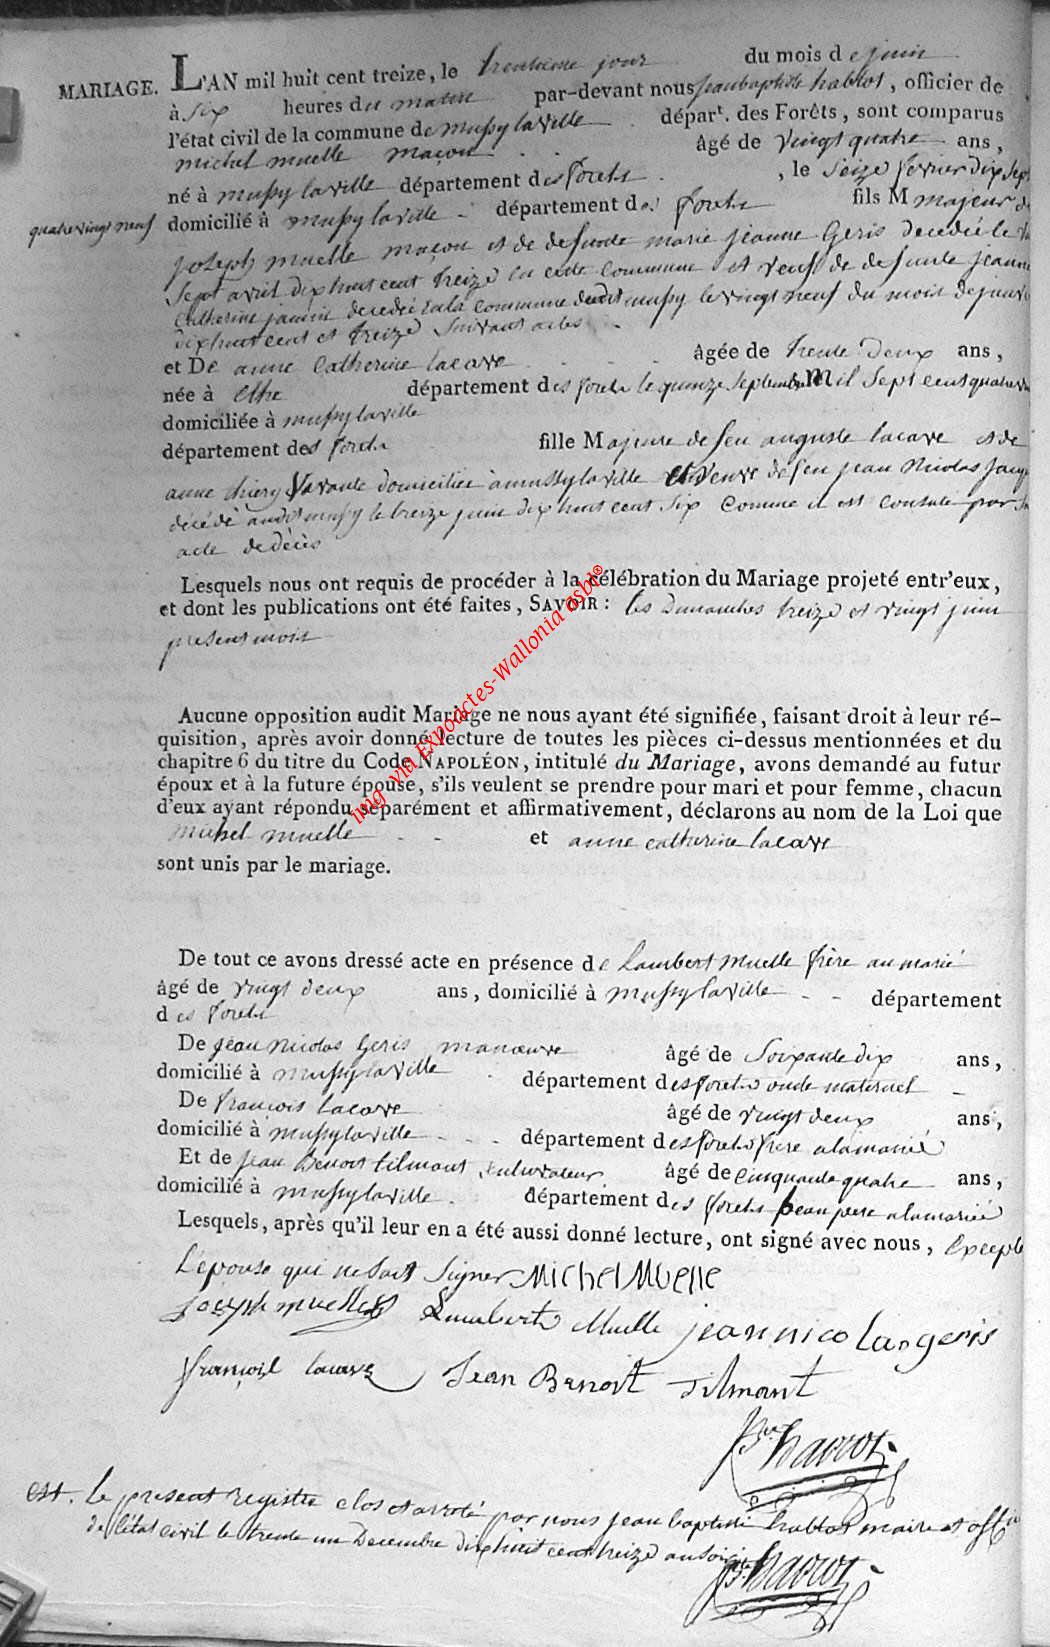 MARIAGE. L'AN mil huit cent treize, le trentieme jour du mois de juin
à Six heures du matin par-devant nous jean baptiste hablot, officier de
l'état civil de la commune de mussy laville départ. des Forêts, sont comparus
michel muelle maçon âgé de vingt quatre ans,
né à mussy laville département des forets, le Seize fevrier dix sept
quatre vingt neuf
domicilié à mussy laville département des forets fils Majeur de
joseph muelle maçon et de defunte marie jeanne Geris decedée le
Sept avril dix huit cent treize en cette commune et veuf de defunte jeanne
catherine janin decedée en la commune dudit mussy le vingt neuf du mois de janv
dix huit cent et treize suivant actes
et De anne Catherine lacave âgée de trente deux ans,
née à Ethe département des forets le quinze septembre Mil sept cent quatre
domiciliée à mussy laville
département des forets fille Majeure de feu auguste lacave et de
anne thiery vivante domiciliée a mussy laville et veuve de feu jean Nicolas
décédé audit mussy le treize juin dix huit cent six comme il est constaté par
acte de decès
Lesquels nous ont requis de procéder à la célébration du Mariage projeté entr'eux,
et dont les publications ont été faites, SAVOIR : les Dimanches treize et vingt juin
present mois
Aucune opposition audit Mariage ne nous ayant été signifiée, faisant droit à leur ré-
quisition, après avoir donné lecture de toutes les pièces ci-dessus mentionnées et du
chapitre 6 du titre du Code NAPOLÉON, intitulé du Mariage, avons demandé au futur
époux et à la future épouse, s'ils veulent se prendre pour mari et pour femme, chacun
d'eux ayant répondu séparément et affirmativement, déclarons au nom de la Loi que
michel muelle et anne catherine lacave
sont unis par le mariage.
De tout ce avons dressé acte en présence de Lambert muelle frère au marié
âgé de vingt deux ans, domicilié à mussy laville département
des forets
De jean nicolas Geris manœuvre âgé de Soixante dix ans,
domicilié à mussy laville département des forets oncle maternel
De françois lacave âgé de vingt deux ans,
domicilié à mussy laville département des forets frere a la mariée
Et de jean Benoit tilmant cultivateur âgé de cinquante quatre ans,
domicilié à mussy laville département des forets beau pere a la mariée
Lesquels, après qu'il leur en a été aussi donné lecture, ont signé avec nous, Excepté
L'épouse qui ne sait signer MICHEL MUELLE
joseph muelle Lambert Muelle jean nicolas geris
françois lacave Jean Benoit Tilmant
JB hablot
Le present registre clos et arreté par nous jean baptiste hablot maire et
de l'état civil le trente un Decembre dix huit cent treize au soir JB hablot
img via Expoactes-Wallonia asbl®